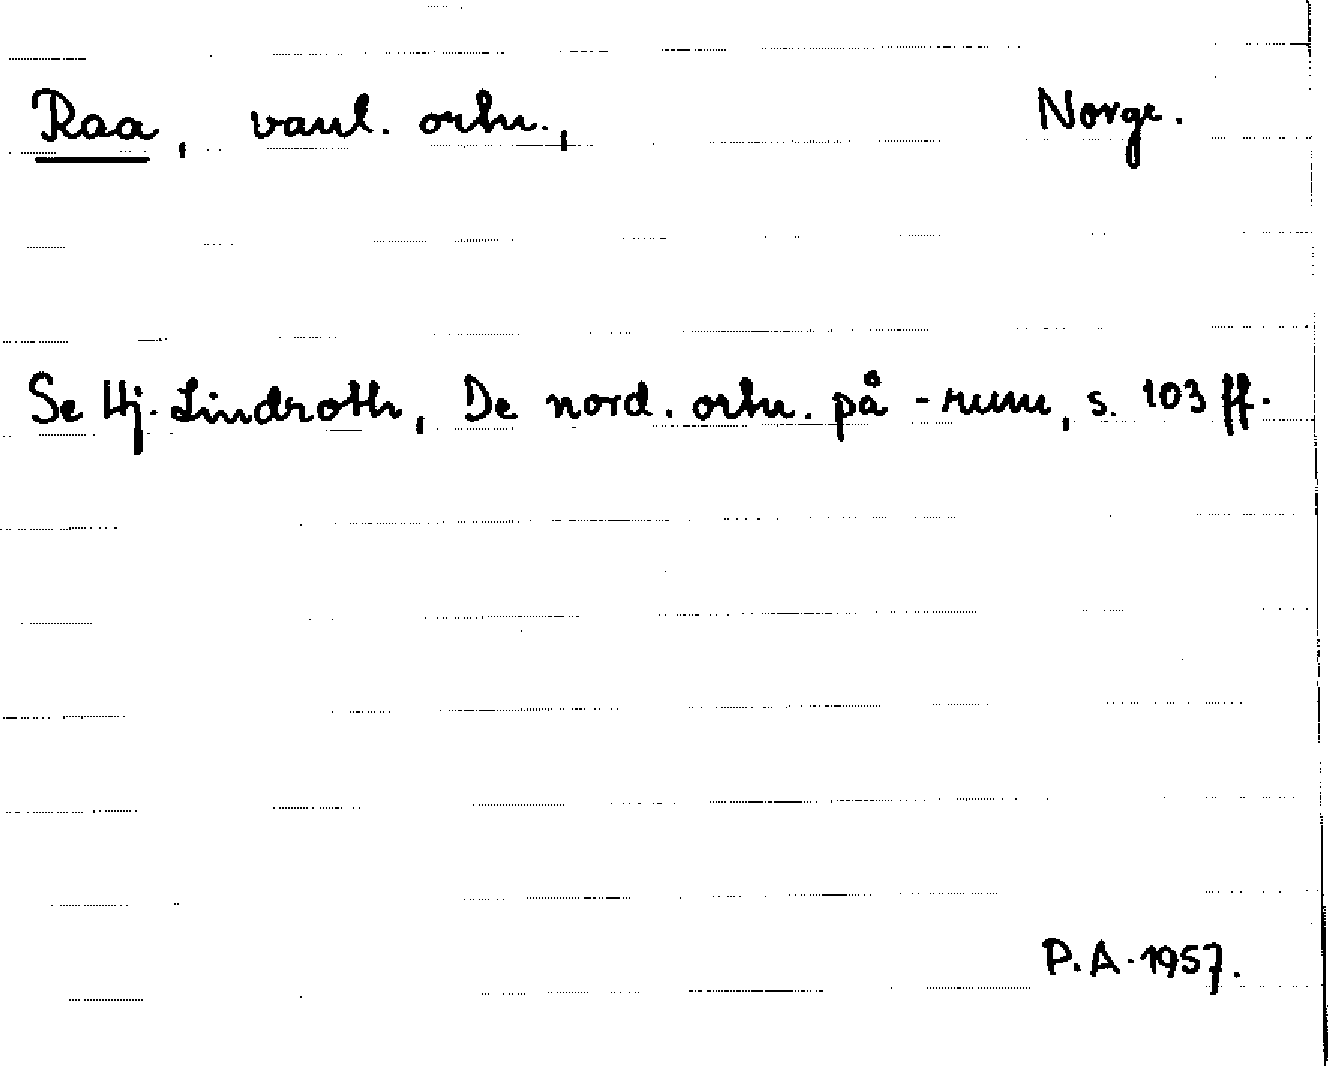 Raa, vanl. ortn., Norge.
Se Hj. Lindroth, De nord. ortn. på -rum, s. 103 ff.
P.A. 1957.